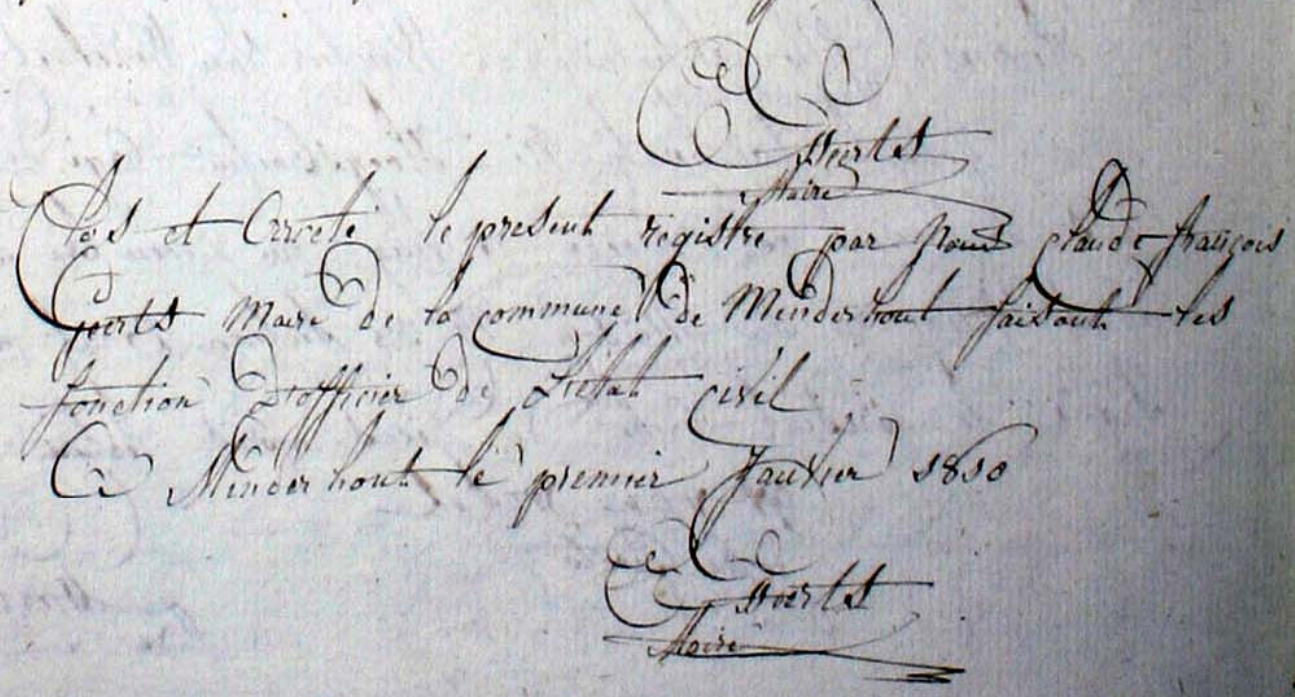 Maire
Clos et Arreté le present régistre par nous Claude françois
Maire de la commune de Minderhout faisant les
fonction D'officier de L'etat civil
A Minderhout le premier Janvier 1810
Maire